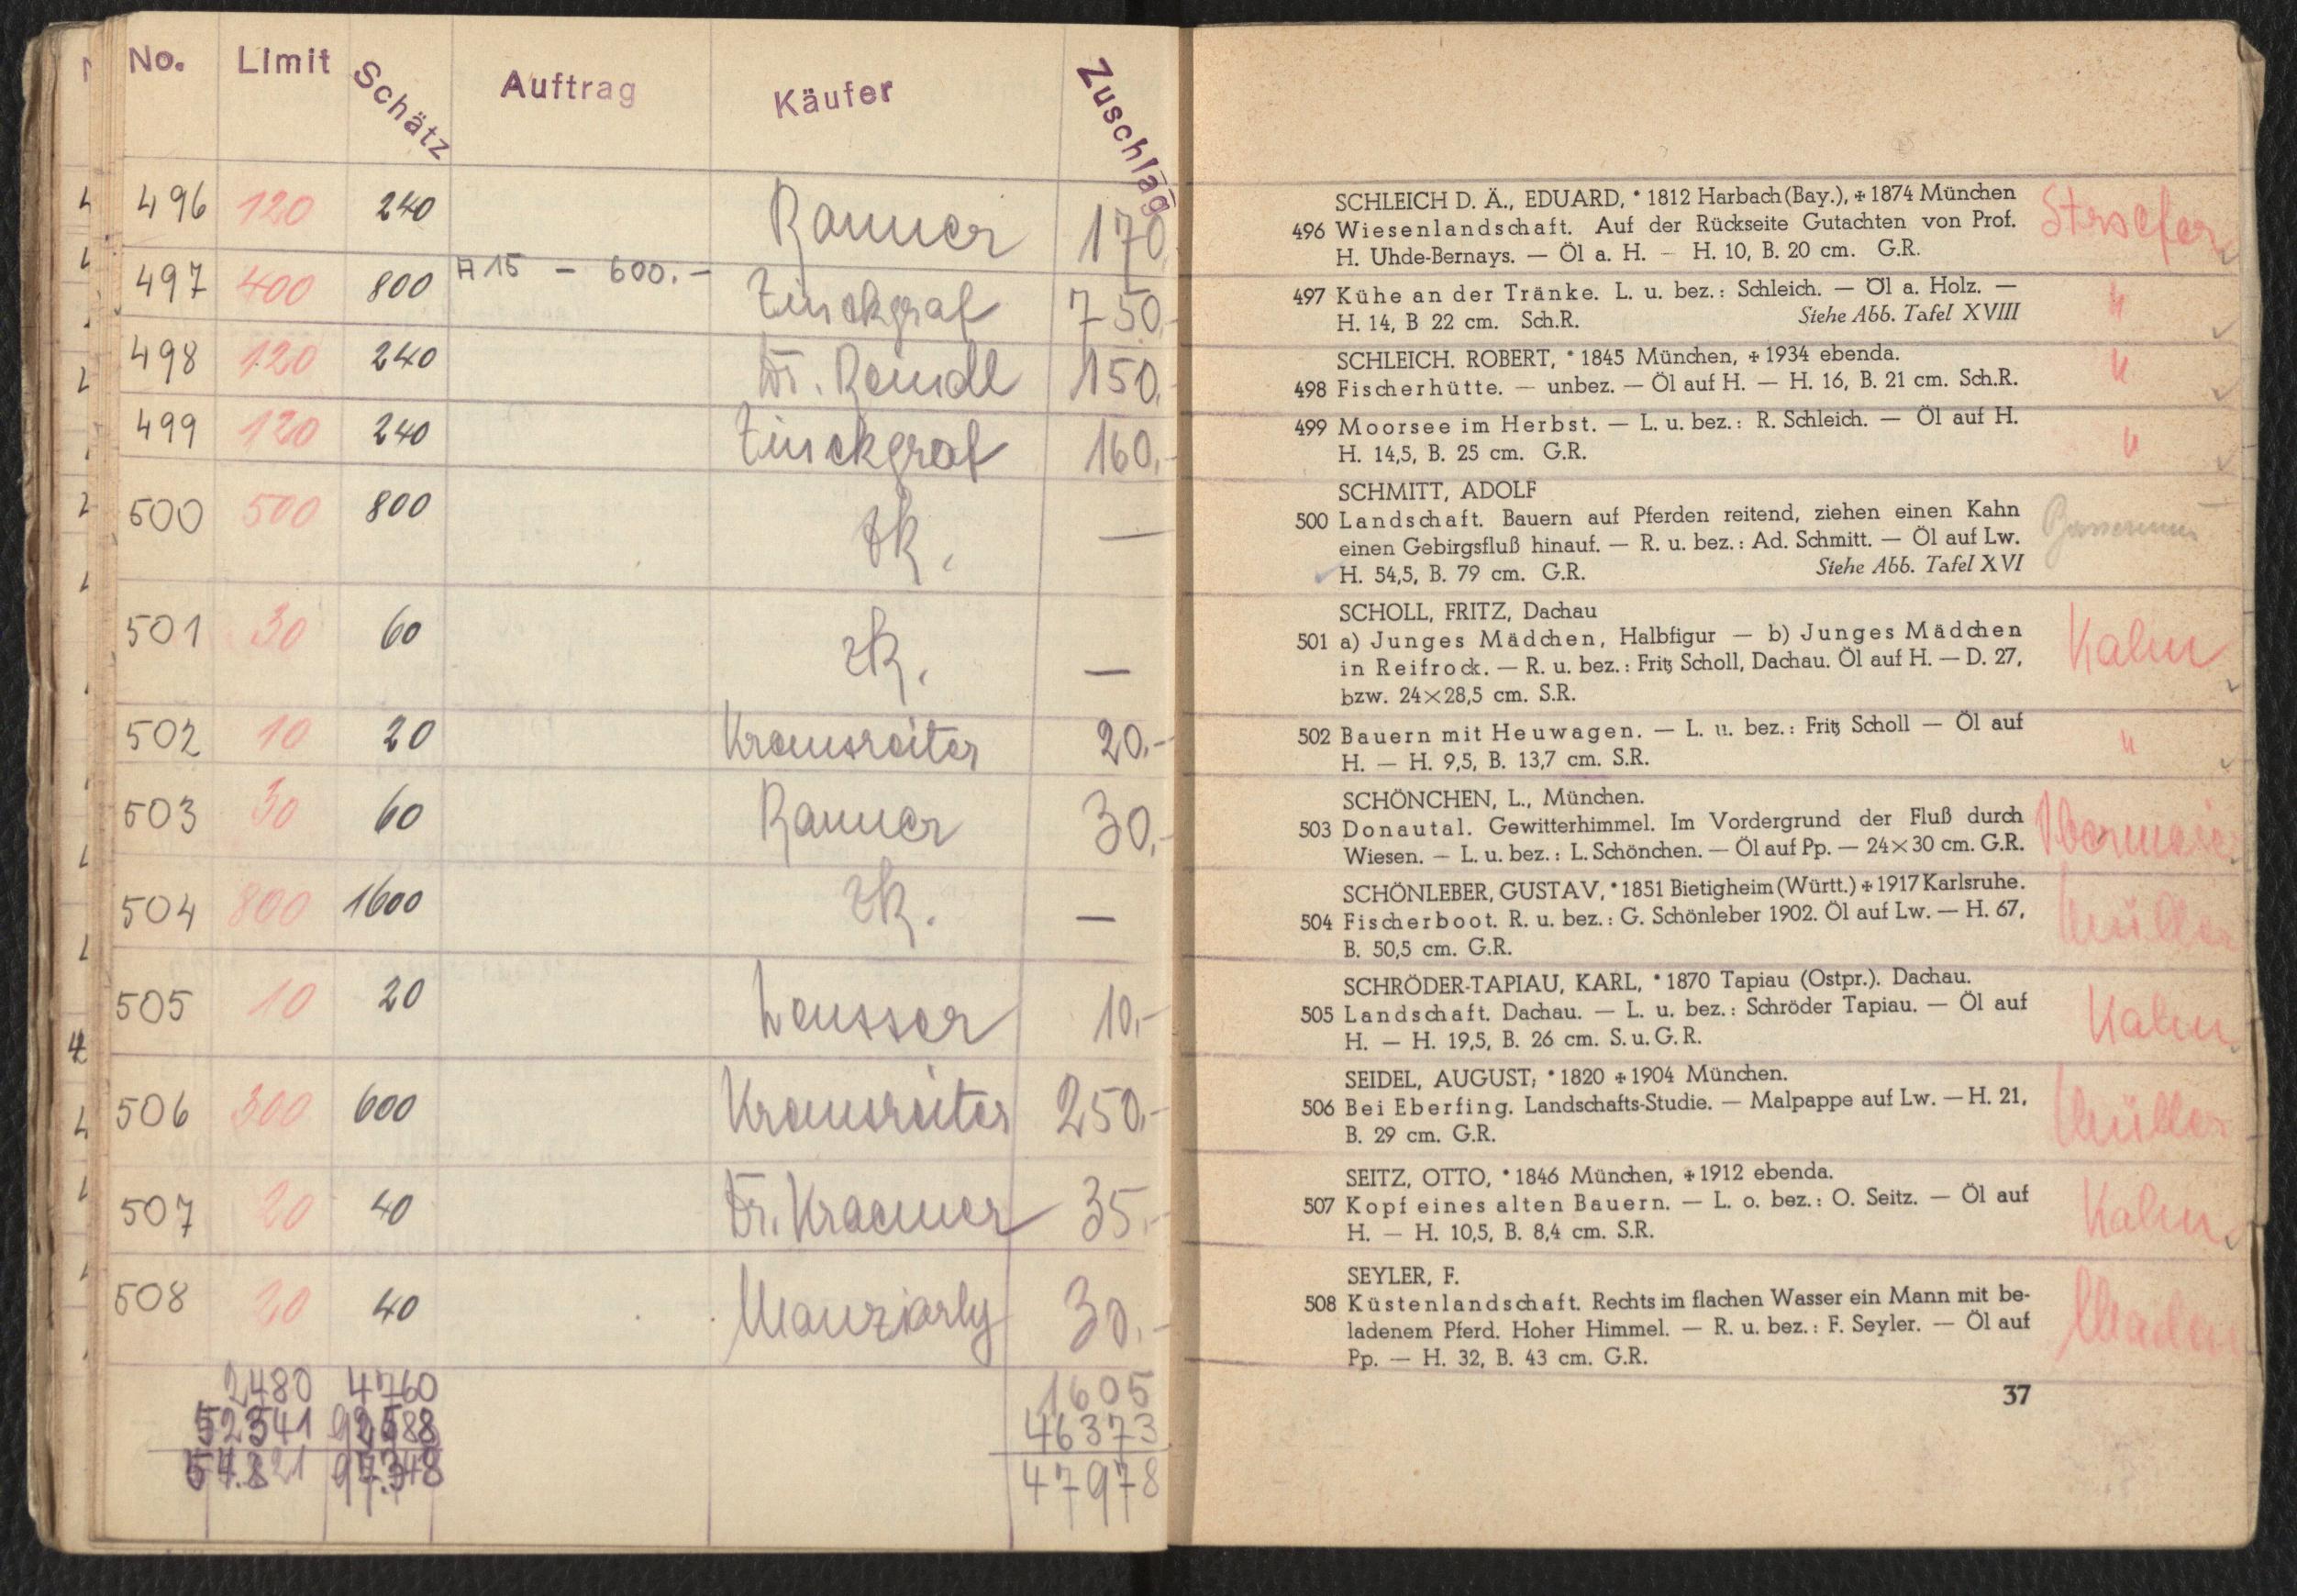 No. Limit Schätz Auftrag Käufer Zuschlag
496 120 240 Ranner 170
497 400 800 A 15 – 600.– Zinckgraf 750.-
498 120 240 Dr. Reindl 150.
499 120 240 Zinckgraf 160.-
500 500 800 zk. —
501 30 60 zk. —
502 10 20 Kransreiter 20.-
503 30 60 Ranner 30.-
504 800 1600 zk. —
505 10 20 10.-
506 300 600 Kransreiter 250.-
507 20 40 Dr. Kraemer 35.-
508 20 40 Manziarly 30.-
2480 4760 1605
52341 92588 46373
54.821 97.348 47978
SCHLEICH D. Ä., EDUARD, * 1812 Harbach (Bay.), ✠ 1874 München
496 Wiesenlandschaft. Auf der Rückseite Gutachten von Prof.
H. Uhde-Bernays. — Öl a. H. — H. 10, B. 20 cm. G.R.
497 Kühe an der Tränke. L. u. bez.: Schleich. — Öl a. Holz. — "
H. 14, B 22 cm. Sch.R. Siehe Abb. Tafel XVIII
SCHLEICH. ROBERT, * 1845 München, ✠ 1934 ebenda. "
498 Fischerhütte. — unbez. — Öl auf H. — H. 16, B. 21 cm. Sch.R.
499 Moorsee im Herbst. — L. u. bez.: R. Schleich. — Öl auf H. "
H. 14,5, B. 25 cm. G.R.
SCHMITT, ADOLF
500 Landschaft. Bauern auf Pferden reitend, ziehen einen Kahn
einen Gebirgsfluß hinauf. — R. u. bez.: Ad. Schmitt. — Öl auf Lw.
H. 54,5, B. 79 cm. G.R. Siehe Abb. Tafel XVI
SCHOLL, FRITZ, Dachau
501 a) Junges Mädchen, Halbfigur — b) Junges Mädchen Kahn
in Reifrock. — R. u. bez.: Fritz Scholl, Dachau. Öl auf H. — D. 27,
bzw. 24×28,5 cm. S.R.
502 Bauern mit Heuwagen. — L. u. bez.: Fritz Scholl — Öl auf "
H. — H. 9,5, B. 13,7 cm. S.R.
SCHÖNCHEN, L., München.
503 Donautal. Gewitterhimmel. Im Vordergrund der Fluß durch
Wiesen. — L. u. bez.: L. Schönchen. — Öl auf Pp. — 24×30 cm. G.R.
SCHÖNLEBER, GUSTAV, * 1851 Bietigheim (Württ.) ✠ 1917 Karlsruhe.
504 Fischerboot. R. u. bez.: G. Schönleber 1902. Öl auf Lw. — H. 67, Müller
B. 50,5 cm. G.R.
SCHRÖDER-TAPIAU, KARL, * 1870 Tapiau (Ostpr.). Dachau.
505 Landschaft. Dachau. — L. u. bez.: Schröder Tapiau. — Öl auf Kahn
H. — H. 19,5, B. 26 cm. S. u. G. R.
SEIDEL, AUGUST; * 1820 ✠ 1904 München.
506 Bei Eberfing. Landschafts-Studie. — Malpappe auf Lw. — H. 21, Müller
B. 29 cm. G.R.
SEITZ, OTTO, * 1846 München, ✠ 1912 ebenda.
507 Kopf eines alten Bauern. — L. o. bez.: O. Seitz. — Öl auf Kahn
H. — H. 10,5, B. 8,4 cm. S.R.
SEYLER, F.
508 Küstenlandschaft. Rechts im flachen Wasser ein Mann mit be-
ladenem Pferd. Hoher Himmel. — R. u. bez.: F. Seyler. — Öl auf
Pp. — H. 32, B. 43 cm. G.R.
37